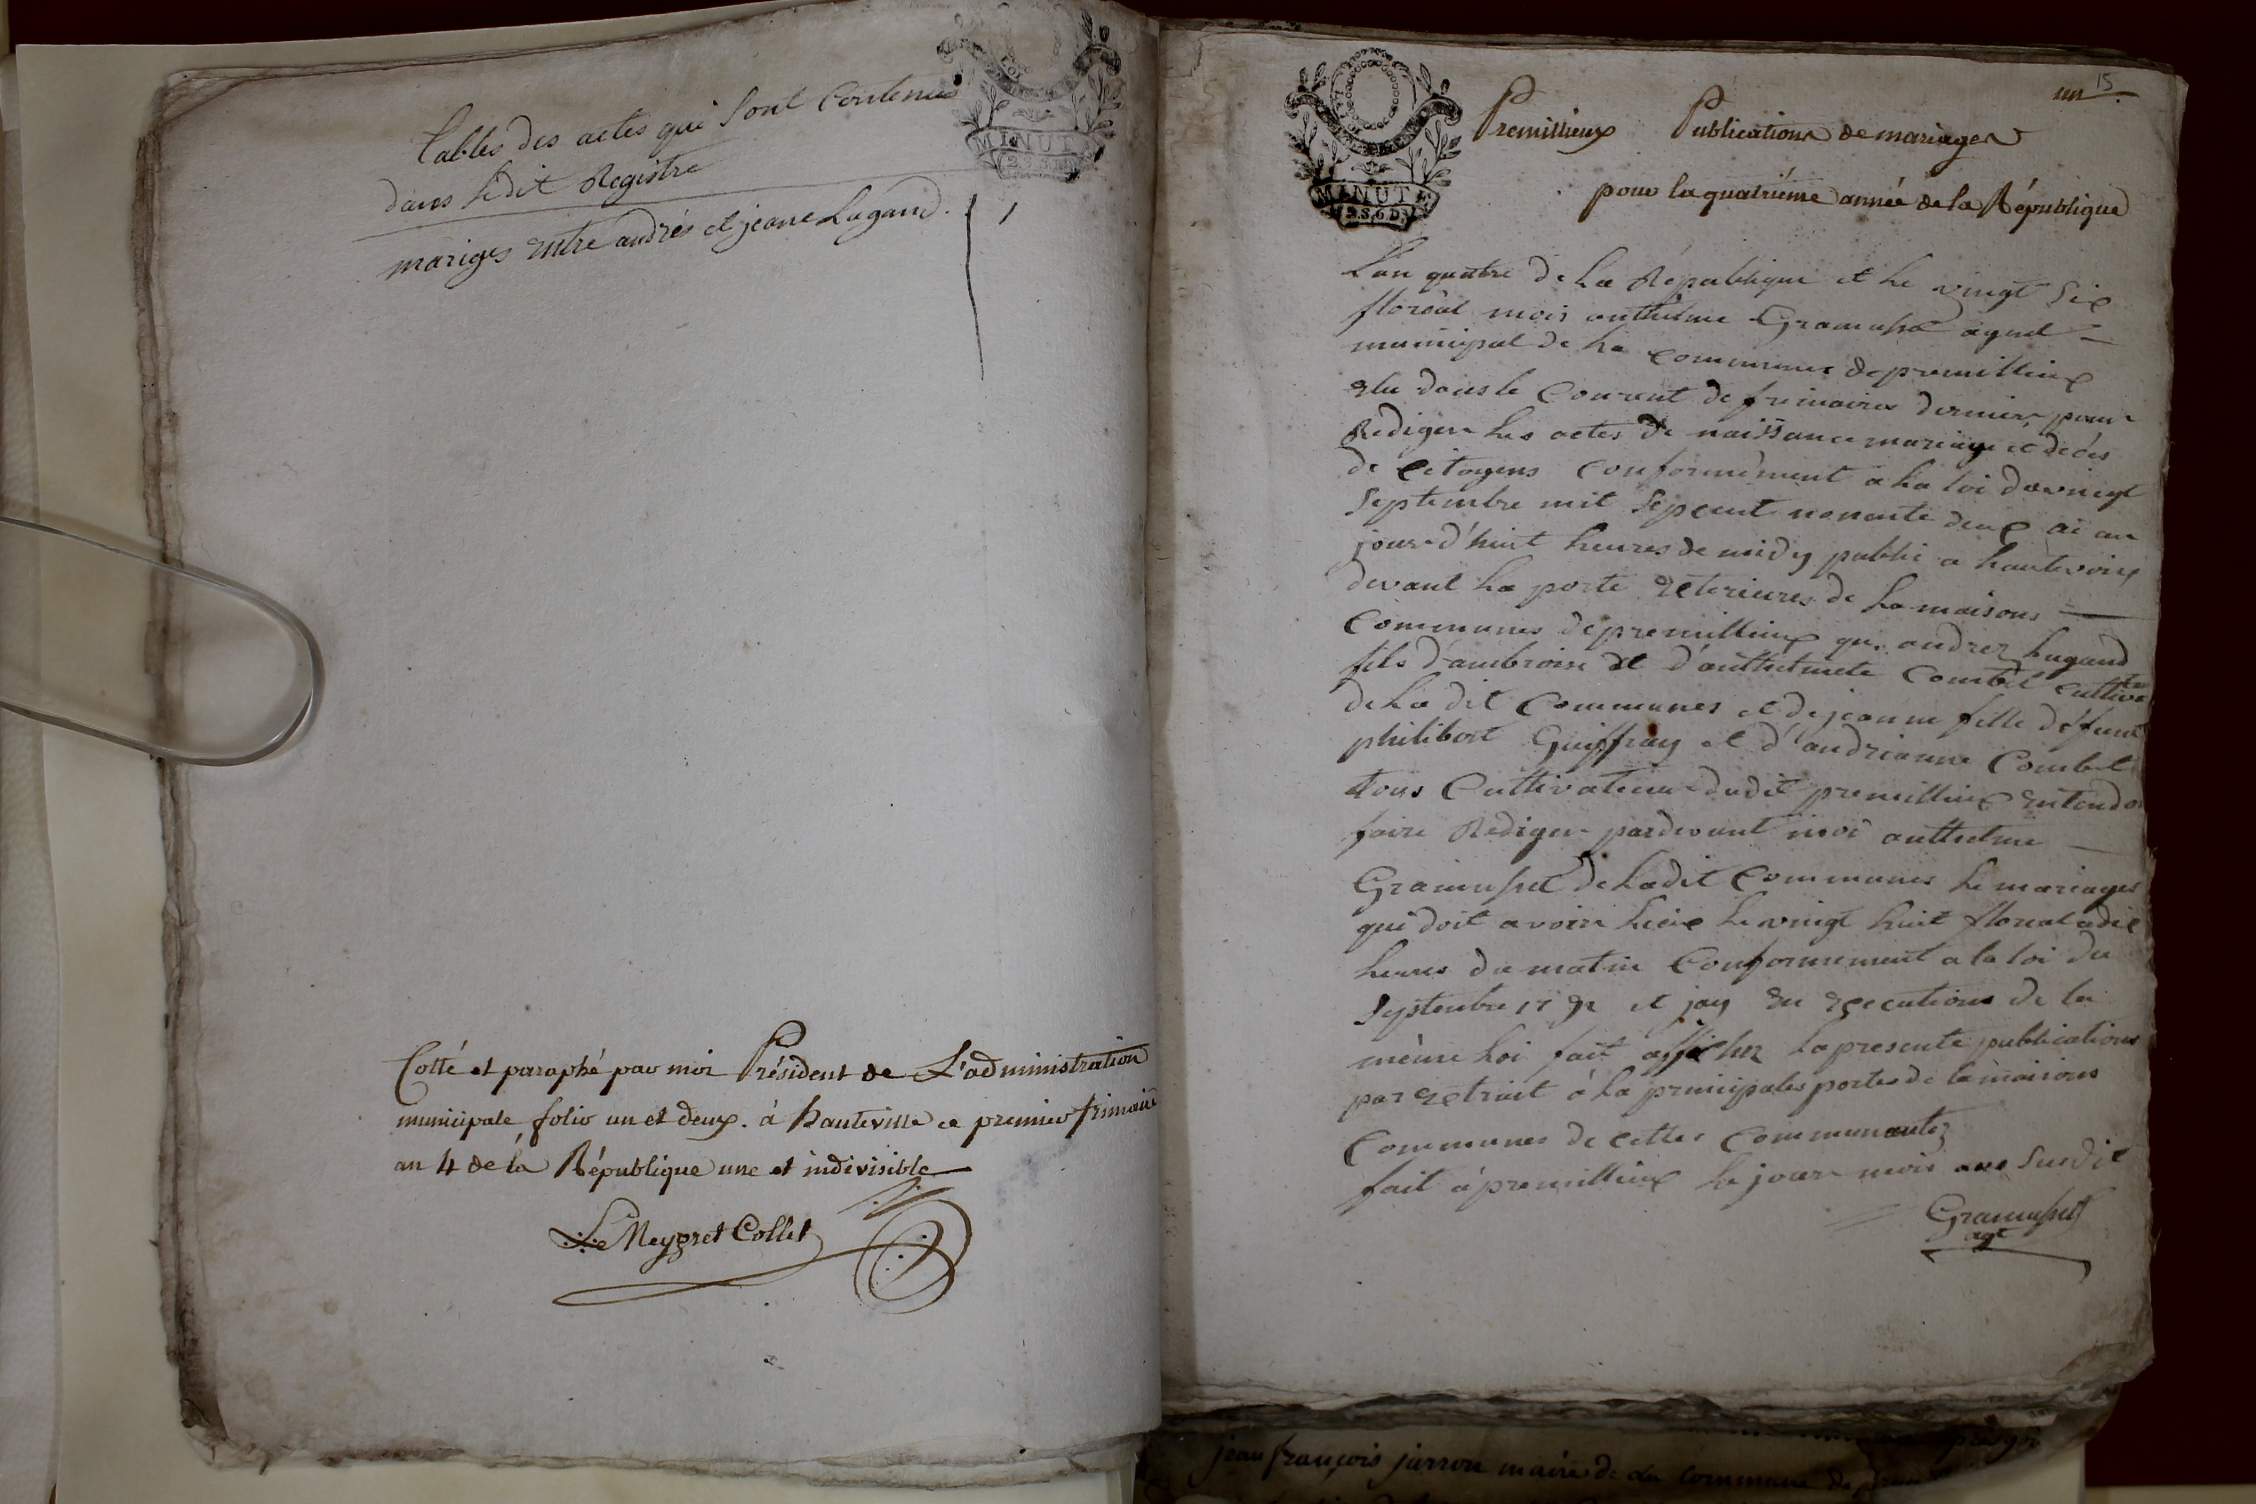 Tables des actes qui sont contenus
dans ledit Registre
mariges entre andrés et jeane Lugand. 1
Cotté et paraphé par moi Président de L'administration
municipale folio un et deux. à hauteville ce premier frimaire
an 4 de la République une et indivisible
Le Meygret Collet
MINUTE
2 S. 6 D.
un 15
Premillieux Publications de mariages
pour la quatriéme année de la République
MINUTE
2 S. 6 D.
L'an quatre de la République et le vingt six
floreal moi anthelme Gramusset agent
municipal de la commune de premillieux
elu dans le courant de frimaires dernier pour
Rediger les actes de naissance mariage et decés
de citoyens conformément a la loi du vingt
septembre mil sepcent nonante deux ai au
jour d'huit heures de midy publié a haute voix
devant la porte exterieures de la maisons
communes de premillieux que andrez lugand
fils d'ambroise et d'anthelmete combet cultivateur
de la dit communes et de jeanne fille défunt
philibert Guiffray et d'andrianne Combet
tous Cultivateur dudit premillieux entend
faire Rediger pardevant moi anthelme
Gramusset de ladit communes le mariages
qui doit avoir lieux le vingt huit floreal a dix
heures du matin conformement a la loi du
septembre 1792 et jay en execution de la
même loi fait afficher la presente publications
par extrait à la principales portes de la maisons
communes de cettes communautez
fait à premillieux le jour mois ans susdit
Gramusset
agt
jean françois jurron maire de la commune de